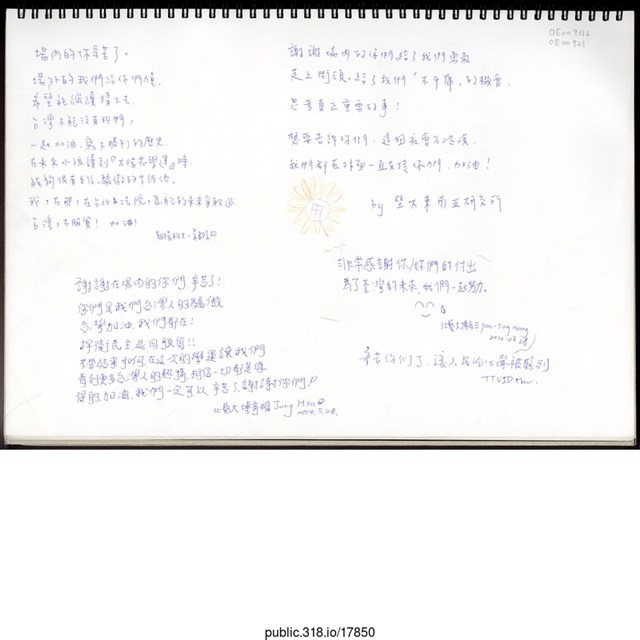 OE009816
OE00961
場內的你辛苦了。
場外的我們陪你們撐,
希望能繼續撐下去.
台灣不能沒有我們,
一起加油,寫下勝利的歷史
在未來小孩讀到『太陽花學運』時
能夠很有自信、驕傲的告訴他.
我,在那,在台北立法院,為自己的未來奮戰過
台灣,不服貿! 加油!
謝謝場內的你們,給了我們勇氣
走上街頭,給了我們「不平庸」的機會.
思考真正重要的事!
想要告訴你們,這個社會不冷漠.
我們都在外面一直支持你們,加油!
by 暨大東南亞研究所
非常感謝你/妳們的付出
為了臺灣的未來,我們一起努力。
2014.03.28
辛苦你們了,讓人民的心聲被聽到
謝謝在場內的你們,辛苦了!
你們是我們台灣人的驕傲
台灣加油,我們都在!
捍衛民主,退回服貿!!
不管結果如何,在這次的學運讓我們
看到更多台灣人的熱情,相信一切都是值
得的,加油,我們一定可以,辛苦了,謝謝你們!!
2014.3.28.
public.318.io/17850